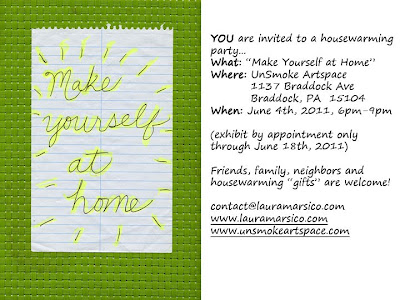 Make
yourself
at
home
YOU are invited to a housewarming
party...
What: “Make Yourself at Home”
Where: UnSmoke Artspace
1137 Braddock Ave
Braddock, PA 15104
When: June 4th, 2011, 6pm-9pm
(exhibit by appointment only
through June 18th, 2011)
Friends, family, neighbors and
housewarming “gifts” are welcome!
contact@lauramarsico.com
www.lauramarsico.com
www.unsmokeartspace.com